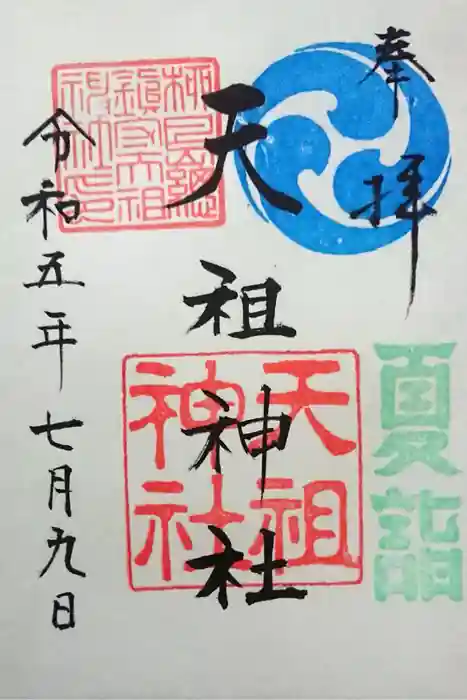 奉拝
夏詣
天祖神社
天祖
神社
令和五年七月九日